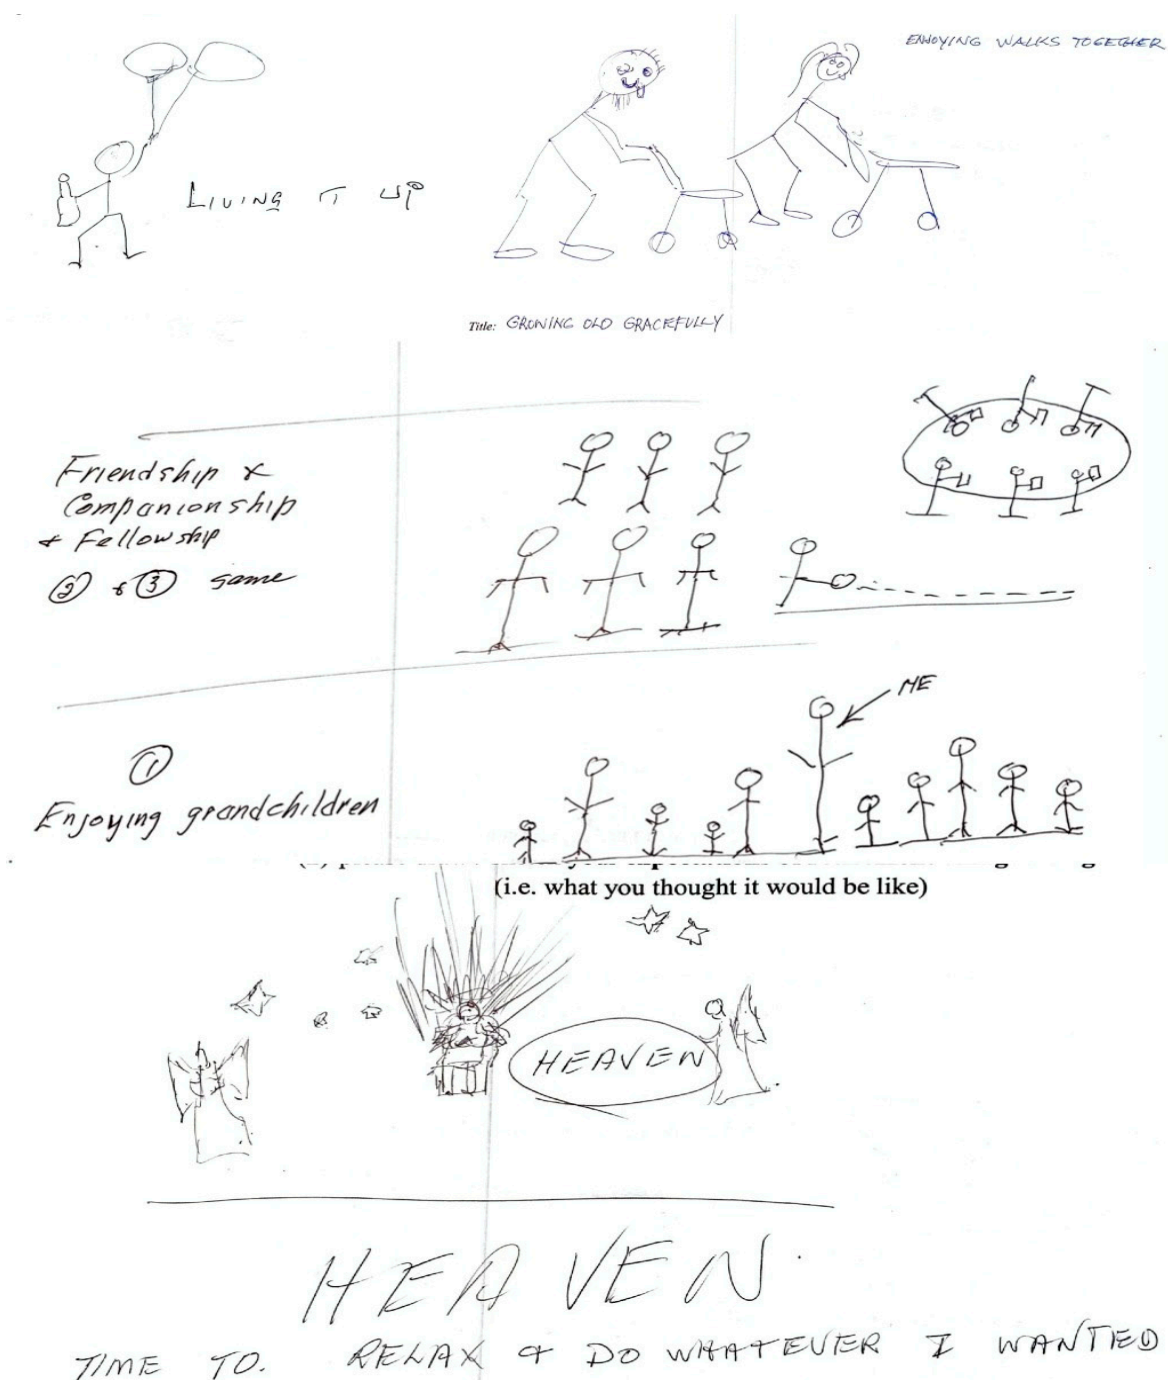 ENJOYING WALKS TOGETHER
LIVING IT UP
Title: GROWING OLD GRACEFULLY
Friendship &
Companionship
& Fellowship
② & ③ same
ME
①
Enjoying grandchildren
(i.e. what you thought it would be like)
HEAVEN
HEAVEN.
TIME TO. RELAX & DO WHATEVER I WANTED